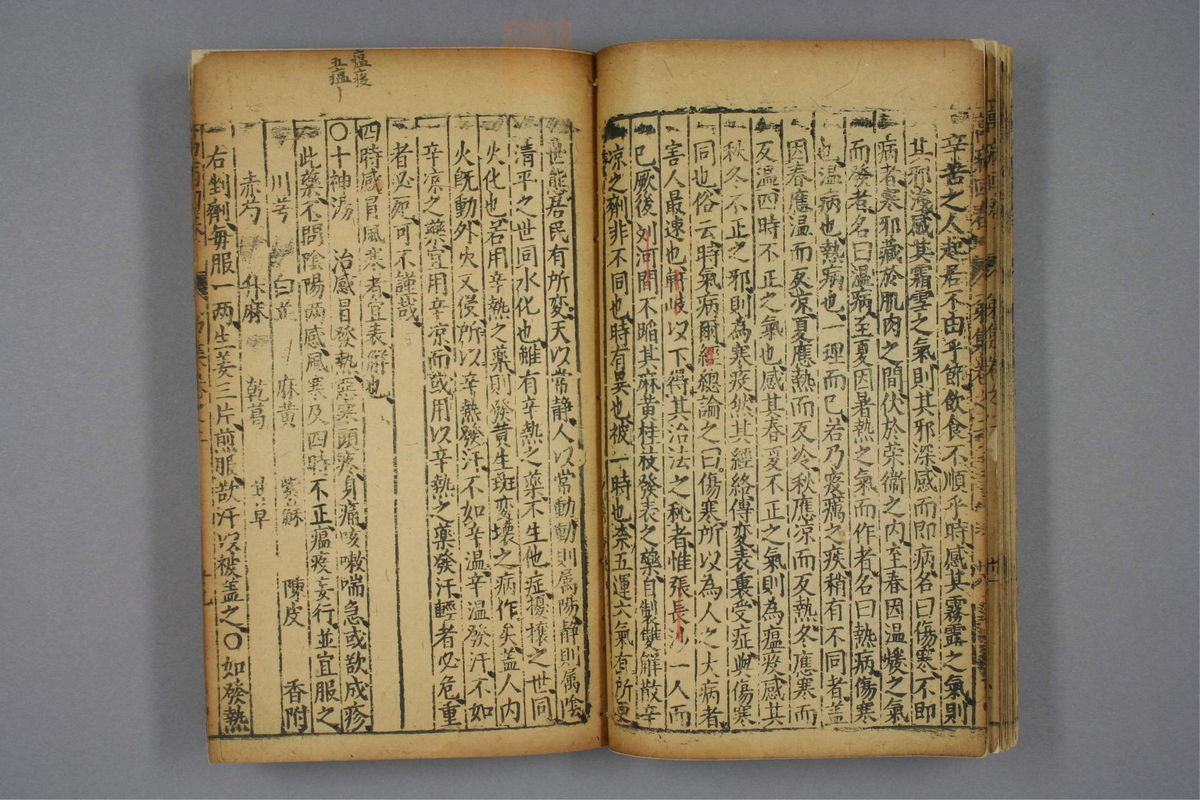 辛苦之人起居不由乎節飲食不順乎時感其霧露之氣則
其邪淺感其霜雪之氣則其邪深感而即病名曰傷寒不即
病者寒邪藏於肌肉之間伏於荣衛之内至春因温煖之氣
而發者名曰温病至夏因暑熱之氣而作者名曰熱病傷寒
也温病也熱病也一理而已若乃疫癘之疾稍有不同者盖
因春應温而反凉夏應熱而反冷秋應凉而反熱冬應寒而
反温四時不正之氣也感其春夏不正之氣則為瘟疫感其
秋冬不正之邪則為寒疫然其經絡傳変表裏受症與傷寒
同也俗云時氣病爾經總論之曰傷寒所以為人之大病者
害人最速也軒岐以下得其治法之秘者惟張長沙一人而
已厥後刘河間不蹈其麻黄桂枝發表之藥自製雙解散辛
凉之劑非不同也時有異也彼一時也奈五運六氣有所更
世態居民有所変天以常静人以常動動則属陽静則属陰
清平之世同水化也雖有辛熱之藥不生他症擾攘之世同
火化也若用辛熱之藥則發黄生斑変壊之病作矣盖人内
火既動外火又侵所以辛熱發汗不如辛温辛温發汗不如
辛凉之藥宜用辛凉而或用以辛熱之藥發汗輕者必危重
者必死可不謹哉
四時感冒風寒者宜表解也
〇十神湯 治感冒發熱惡寒頭疼身痛咳嗽喘急或欲成疹
此藥不問陰陽両感風寒及四時不正瘟疫妄行並宜服之
川芎 白芷 麻黄 紫蘇 陳皮 香附
赤芍 升麻 乾葛 甘草
右剉劑每服一两生姜三片煎服欲汗以被盖之〇如發熱
瘟疫
五瘟